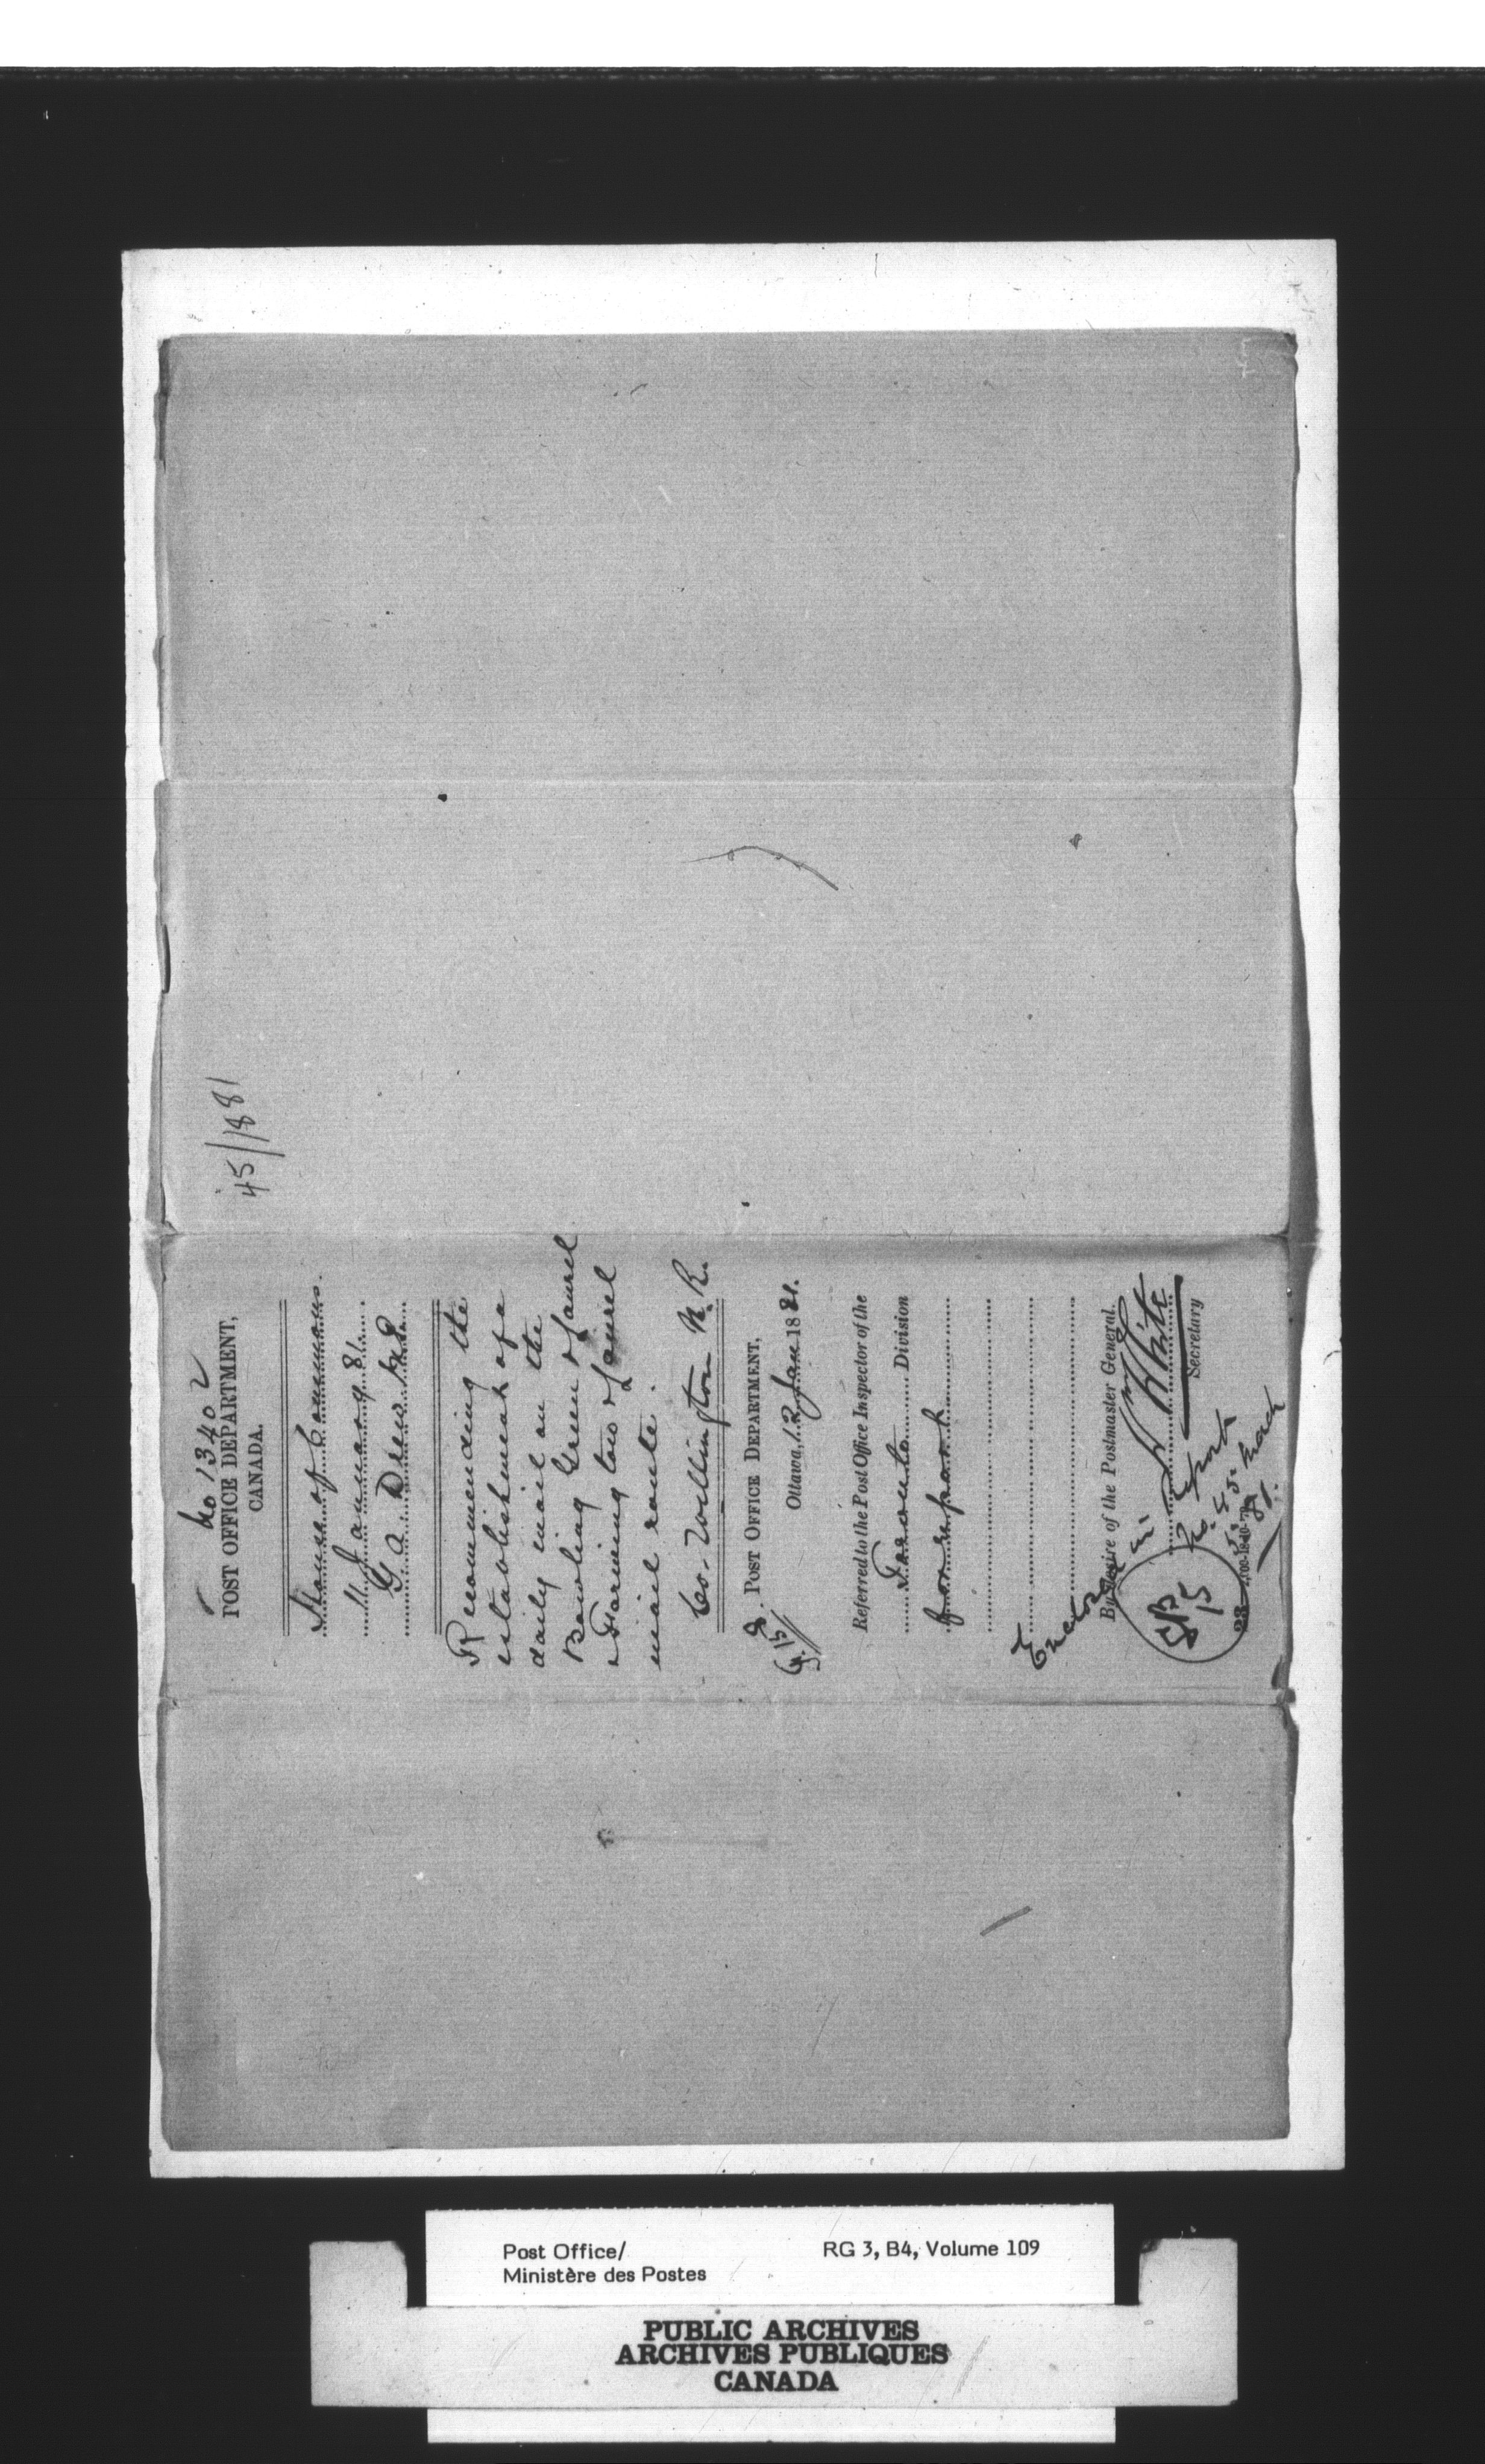 No 13402
POST OFFICE DEPARTMENT,
CANADA.
45/1881
House of Commons.
11 January 81.
G. A. Drew M.P.
Recommending the
establishment of a
daily mail on the
Bowling Green & Laurel
& Farming to Laurel
mail route.
Co. Wellington N.R.
POST OFFICE DEPARTMENT,
Ottawa, 12 Jan 1881.
Referred to the Post Office Inspector of the
Toronto Division
for report
By desire of the Postmaster General.
White
Secretary
Report
Post Office/
Ministère des Postes
RG 3, B4, Volume 109
PUBLIC ARCHIVES
ARCHIVES PUBLIQUES
CANADA